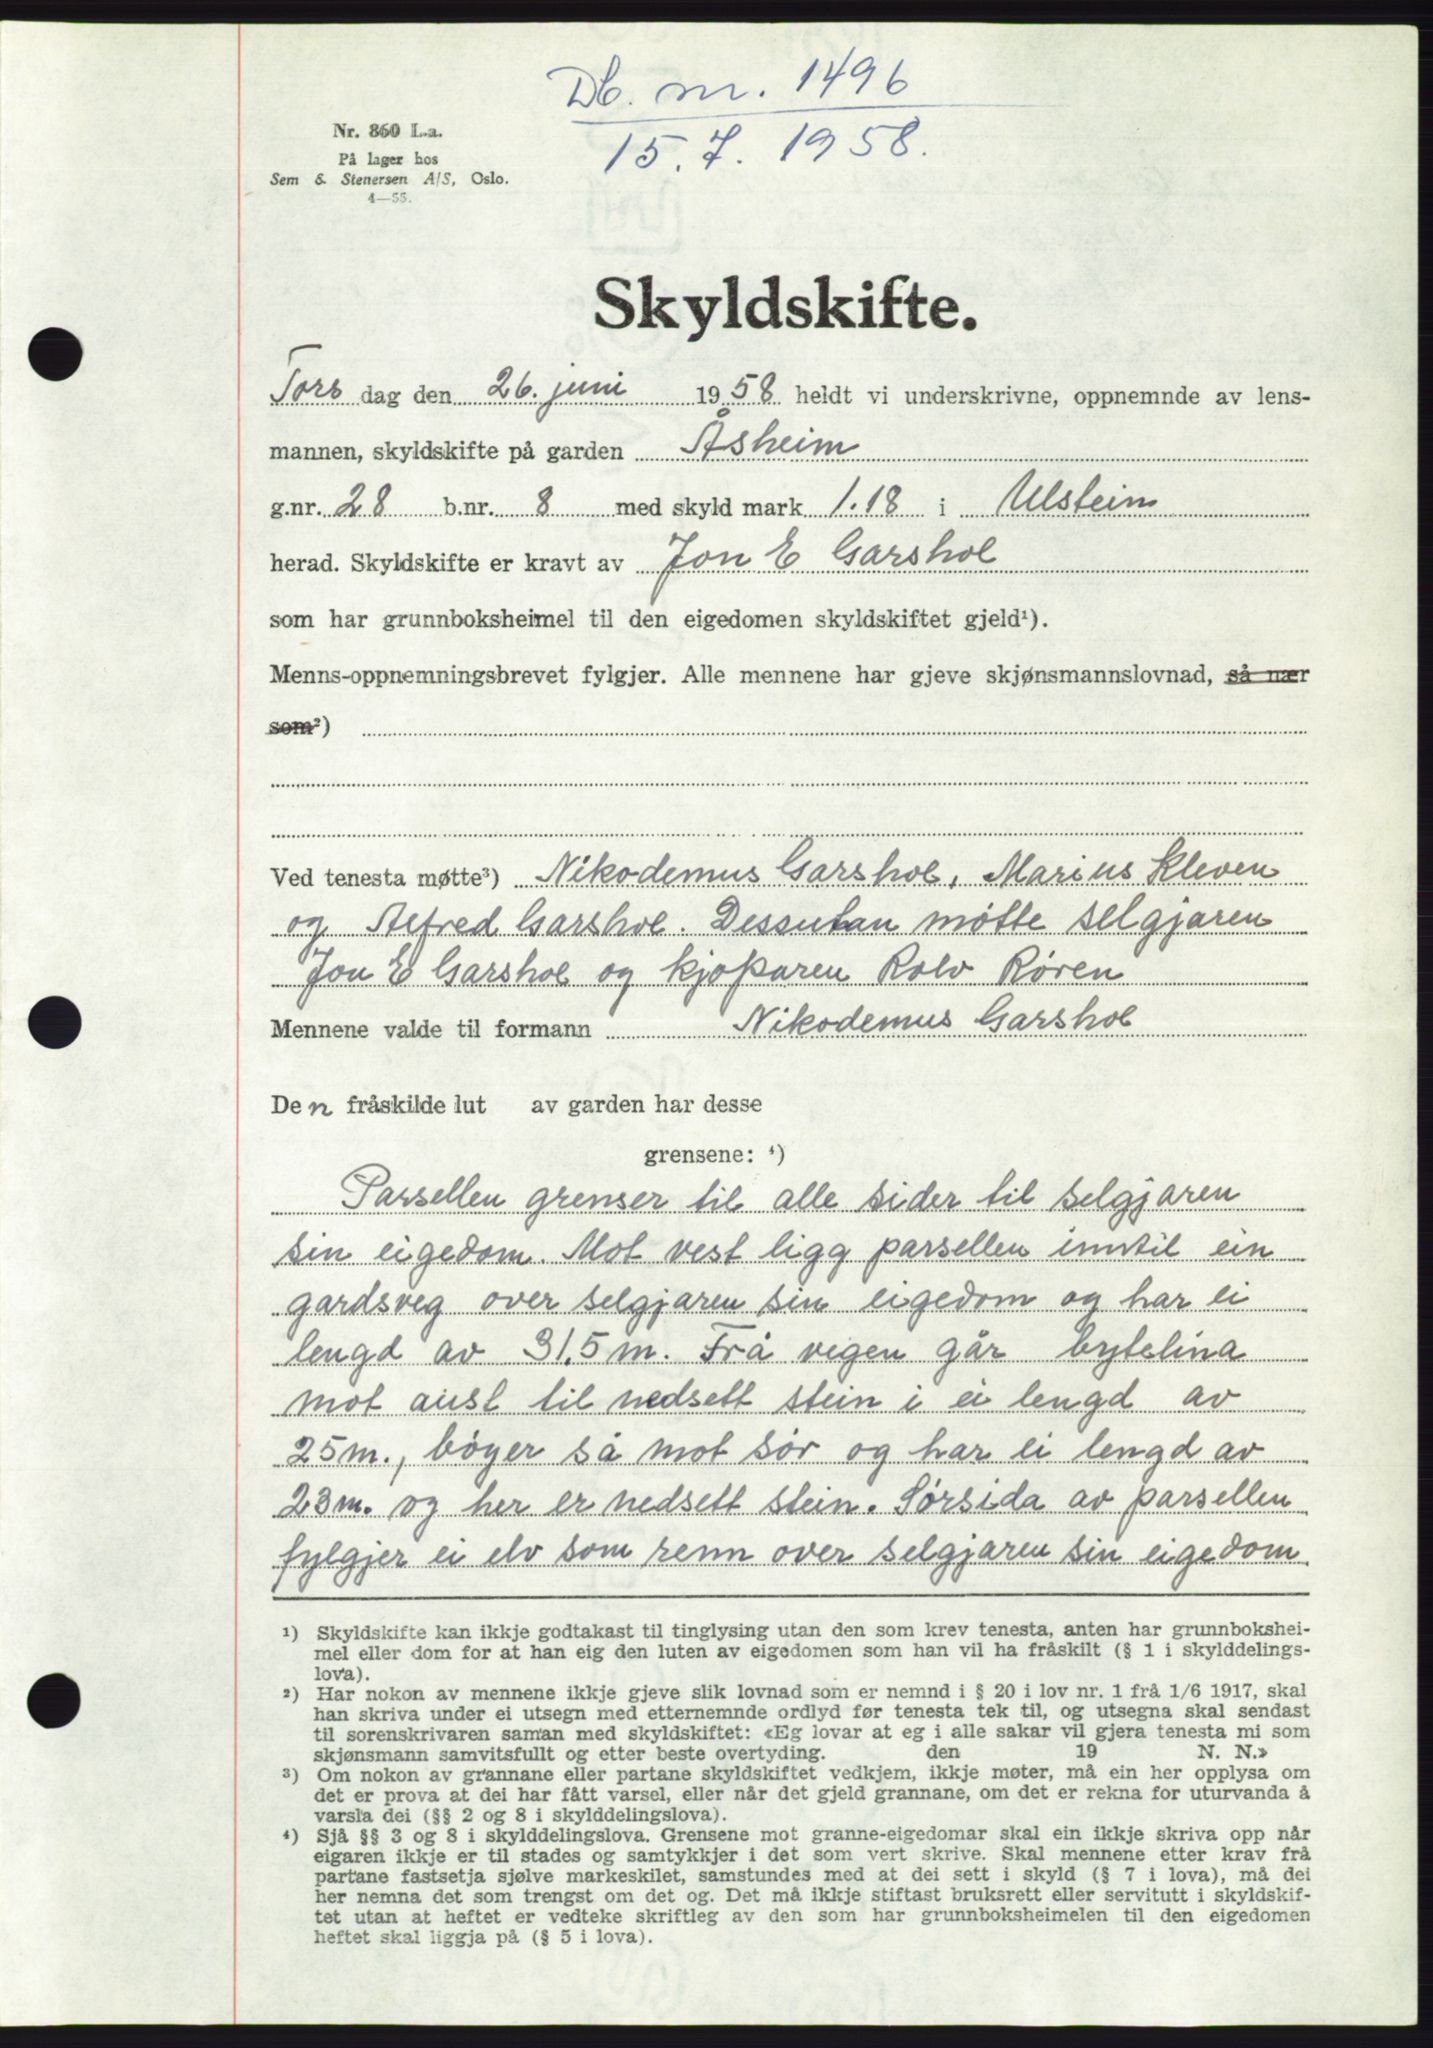 Db. nr. 1496
15.7.1958.
Nr. 860 L.a.
På lager hos
Sem & Stenersen A/S, Oslo.
4—55.
Skyldskifte.
Tors dag den 26. juni 1958 heldt vi underskrivne, oppnemnde av lens-
mannen, skyldskifte på garden Åsheim
g.nr. 28 b.nr. 8 med skyld mark 1.18 i Ulstein
herad. Skyldskifte er kravt av Jon E Garshol
som har grunnboksheimel til den eigedomen skyldskiftet gjeld¹).
Menns-oppnemningsbrevet fylgjer. Alle mennene har gjeve skjønsmannslovnad, så nær
som²)
Ved tenesta møtte³) Nikodemus Garshol, Marius Kleven
og Alfred Garshol. Dessutan møtte selgjaren
Jon E Garshol og kjøparen Rolv Røren
Mennene valde til formann Nikodemus Garshol
Den fråskilde lut av garden har desse
grensene: ⁴)
Parsellen grenser til alle sider til selgjaren
sin eigedom. Mot vest ligg parsellen inntil ein
gardsveg over selgjaren sin eigedom og har ei
lengd av 31,5 m. Frå vegen går bytelina
mot aust til nedsett stein i ei lengd av
25 m., bøyer så mot sør og har ei lengd av
23 m. og her er nedsett stein. Sørsida av parsellen
fylgjer ei elv som renn over selgjaren sin eigedom
¹) Skyldskifte kan ikkje godtakast til tinglysing utan den som krev tenesta, anten har grunnbokshei-
mel eller dom for at han eig den luten av eigedomen som han vil ha fråskilt (§ 1 i skylddelings-
lova).
²) Har nokon av mennene ikkje gjeve slik lovnad som er nemnd i § 20 i lov nr. 1 frå 1/6 1917, skal
han skriva under ei utsegn med etternemnde ordlyd før tenesta tek til, og utsegna skal sendast
til sorenskrivaren saman med skyldskiftet: «Eg lovar at eg i alle sakar vil gjera tenesta mi som
skjønsmann samvitsfullt og etter beste overtyding. den 19 N. N.»
³) Om nokon av grannane eller partane skyldskiftet vedkjem, ikkje møter, må ein her opplysa om
det er prova at dei har fått varsel, eller når det gjeld grannane, om det er rekna for uturvanda å
varsla dei (§§ 2 og 8 i skylddelingslova).
⁴) Sjå §§ 3 og 8 i skylddelingslova. Grensene mot granne-eigedomar skal ein ikkje skriva opp når
eigaren ikkje er til stades og samtykkjer i det som vert skrive. Skal mennene etter krav frå
partane fastsetja sjølve markeskilet, samstundes med at dei sett i skyld (§ 7 i lova), må dei
her nemna det som trengst om det og. Det må ikkje stiftast bruksrett eller servitutt i skyldskif-
tet utan at heftet er vedteke skriftleg av den som har grunnboksheimelen til den eigedomen
heftet skal liggja på (§ 5 i lova).